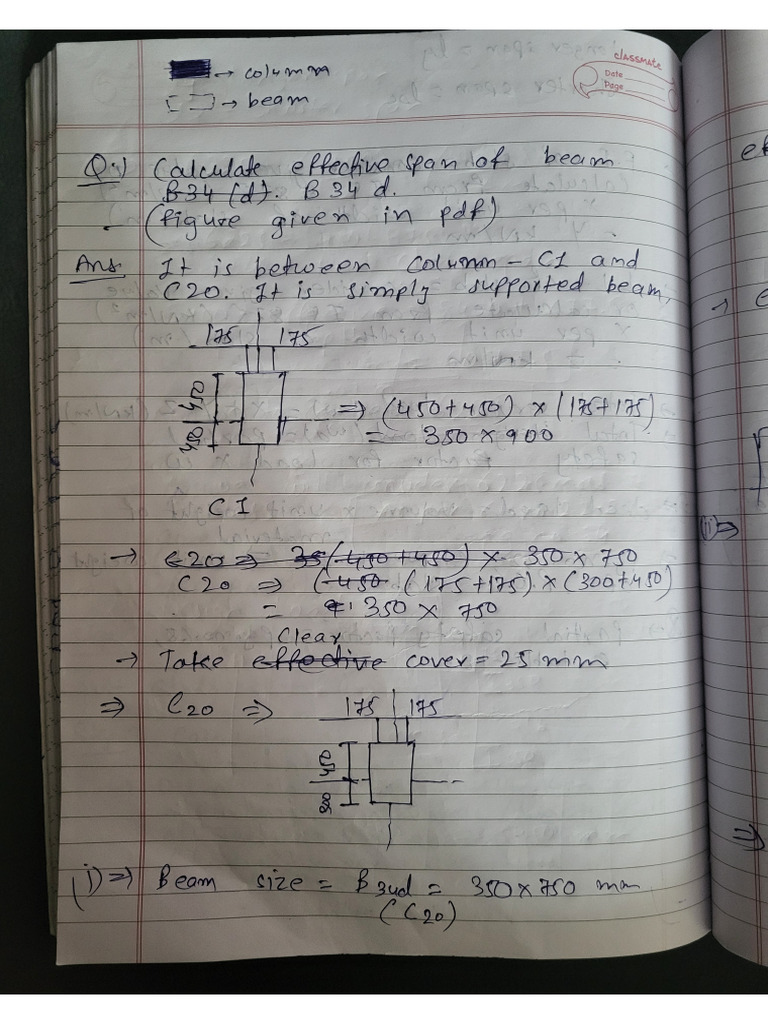 → column
classmate
Date
Page
→ beam
Q.1) Calculate effective span of beam
B34 (d). B 34 d.
(figure given in pdf)
Ans. It is between Column - C1 and
C20. It is simply supported beam,
175 175
450
450
⇒ (450+450) × (175+175)
= 350 × 900
C1
→ C20 ⇒ 35(450+450) × 350 × 750
C20 ⇒ (450 (175+175) × (300+450)
= 350 × 750
Clear
→ Take effective cover = 25 mm
⇒ C20 ⇒ 175 175
(i) ⇒ Beam size = B34d = 350 × 750 mm
(C20)
(ii) ⇒